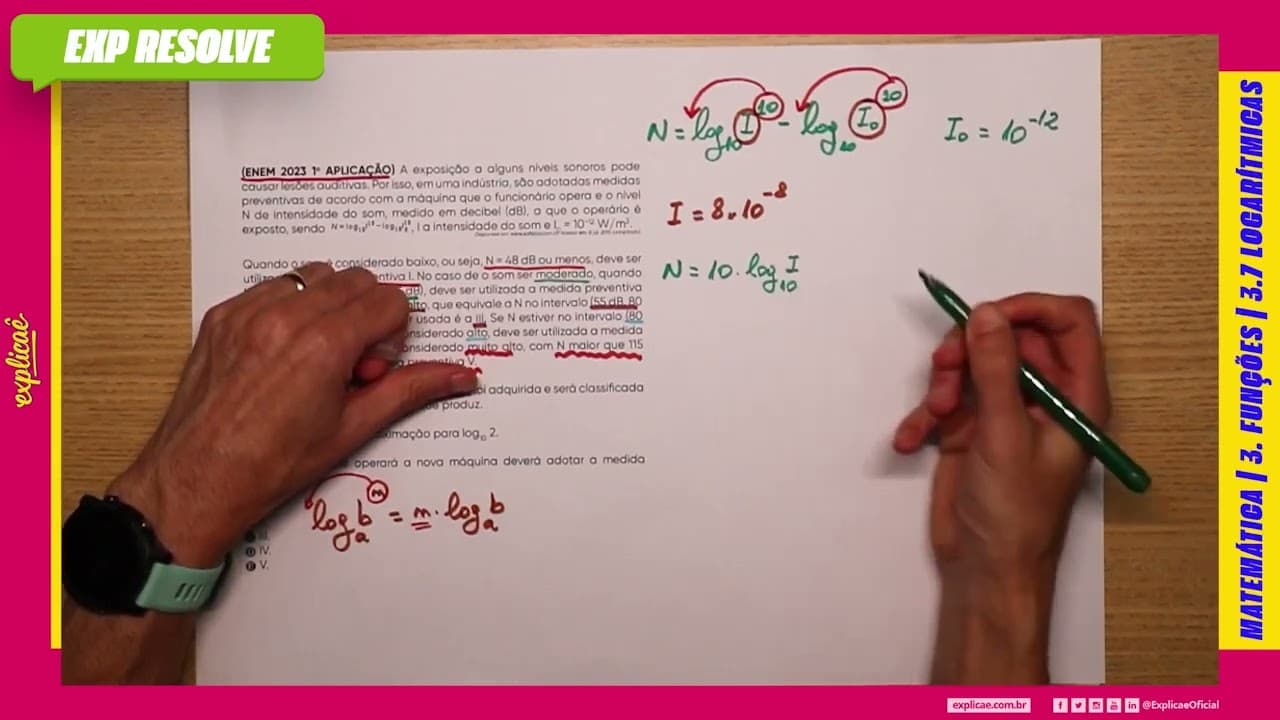 EXP RESOLVE
explicaê
(ENEM 2023 1ª APLICAÇÃO) A exposição a alguns níveis sonoros pode
causar lesões auditivas. Por isso, em uma indústria, são adotadas medidas
preventivas de acordo com a máquina que o funcionário opera e o nível
N de intensidade do som, medido em decibel (dB), a que o operário é
exposto, sendo N = log₁₀ I¹⁰ − log₁₀ I₀¹⁰, I a intensidade do som e I₀ = 10⁻¹² W/m².
Quando o som é considerado baixo, ou seja, N = 48 dB ou menos, deve ser
ntiva I. No caso de o som ser moderado, quando
dB), deve ser utilizada a medida preventiva
alto, que equivale a N no intervalo (55 dB, 80
r usada é a III. Se N estiver no intervalo (80
nsiderado alto, deve ser utilizada a medida
onsiderado muito alto, com N maior que 115
a preventiva V.
oi adquirida e será classificada
ue produz.
ximação para log₁₀ 2.
operará a nova máquina deverá adotar a medida
III.
D IV.
E V.
log_a b^m = m · log_a b
N = log₁₀ I¹⁰ - log₁₀ I₀¹⁰
I₀ = 10⁻¹²
I = 8 . 10⁻⁸
N = 10 . log₁₀ I
MATEMÁTICA | 3. FUNÇÕES | 3.7 LOGARÍTMICAS
explicae.com.br
@ExplicaeOficial